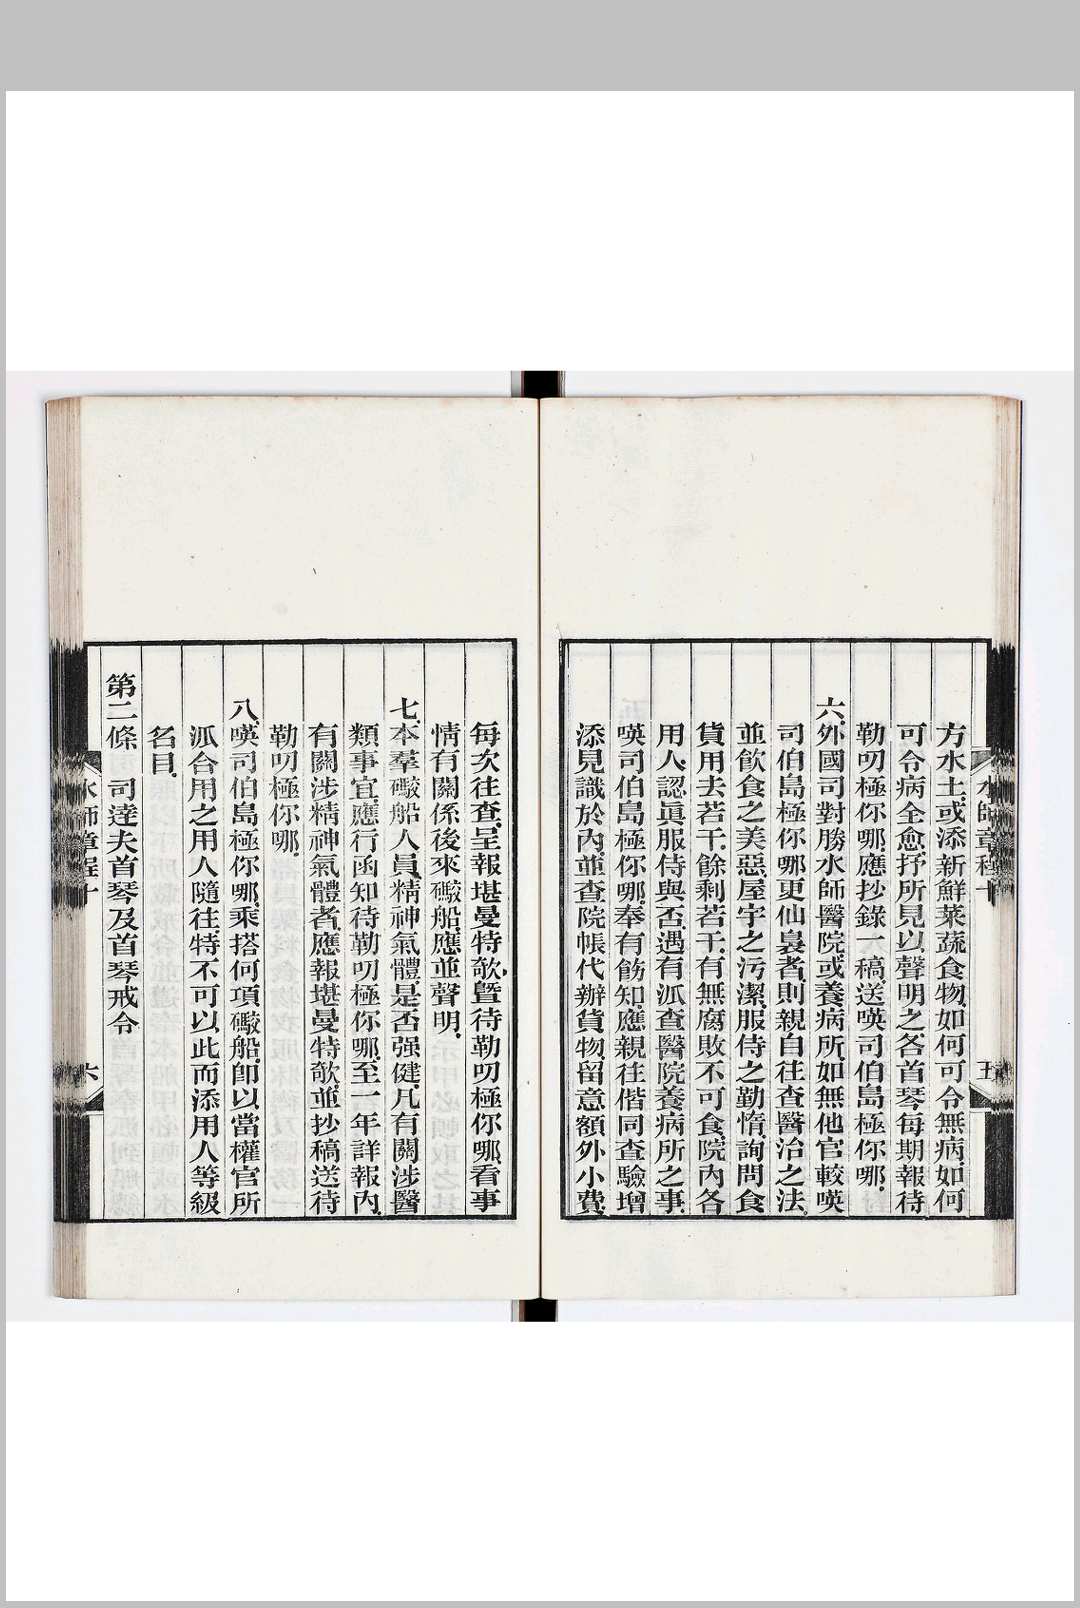 方水土或添新鮮菜蔬食物如何可令無病如何
可令病全愈抒所見以聲明之各首琴每期報待
勒叨極你哪應抄錄一稿送嘆司伯島極你哪
六外國司對勝水師醫院或養病所如無他官較嘆
司伯島極你哪更仙裊者則親自往查醫治之法
並飲食之美惡屋宇之污潔服侍之勤惰詢問食
貨用去若干餘剩若干有無腐敗不可食院內各
用人認眞服侍與否遇有派查醫院養病所之事
嘆司伯島極你哪奉有飭知應親往偕同查驗增
添見識於內並查院帳代辦貨物留意額外小費
水師章程十 五
每次往查呈報堪曼特欹暨待勒叨極你哪看事
情有關係後來礮船應並聲明
七本羣礮船人員精神氣體是否强健凡有關涉醫
類事宜應行函知待勒叨極你哪至一年詳報內
有關涉精神氣體者應報堪曼特欹並抄稿送待
勒叨極你哪
八嘆司伯島極你哪乘搭何項礮船卽以當權官所
派合用之用人隨往特不可以此而添用人等級
名目
第二條 司達夫首琴及首琴戒令
水師章程十 六